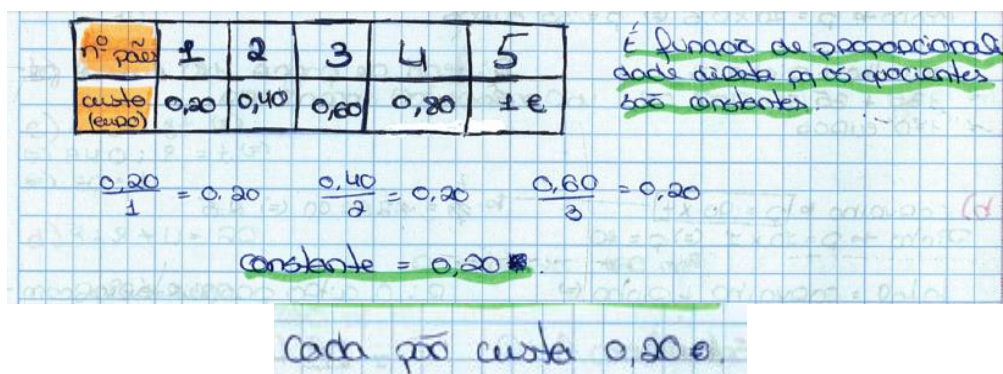 nº pães 1 2 3 4 5
custo (euro) 0,20 0,40 0,60 0,80 1 €
É função de proporcional
dade direta pq os quocientes
são constantes.
0,20/1 = 0.20 0,40/2 = 0,20 0,60/3 = 0,20
constante = 0,20
Cada pão custa 0,20€.